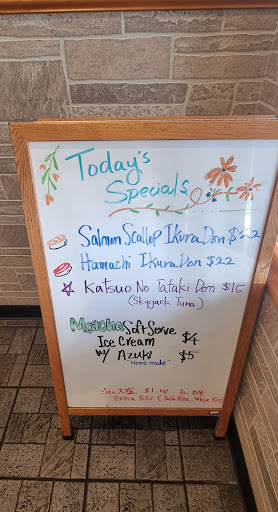 Today's
Specials
Salmon Scallop Ikura Don $22
Hamachi Ikura Don $22
Katsuo No Tataki Don $16
(Skipjack Tuna)
Matcha Soft Serve
Ice Cream $4
w/ Azuki $5
"Home made"
大盛 $1 up
Extra Rice (Sushi Rice, White Rice)